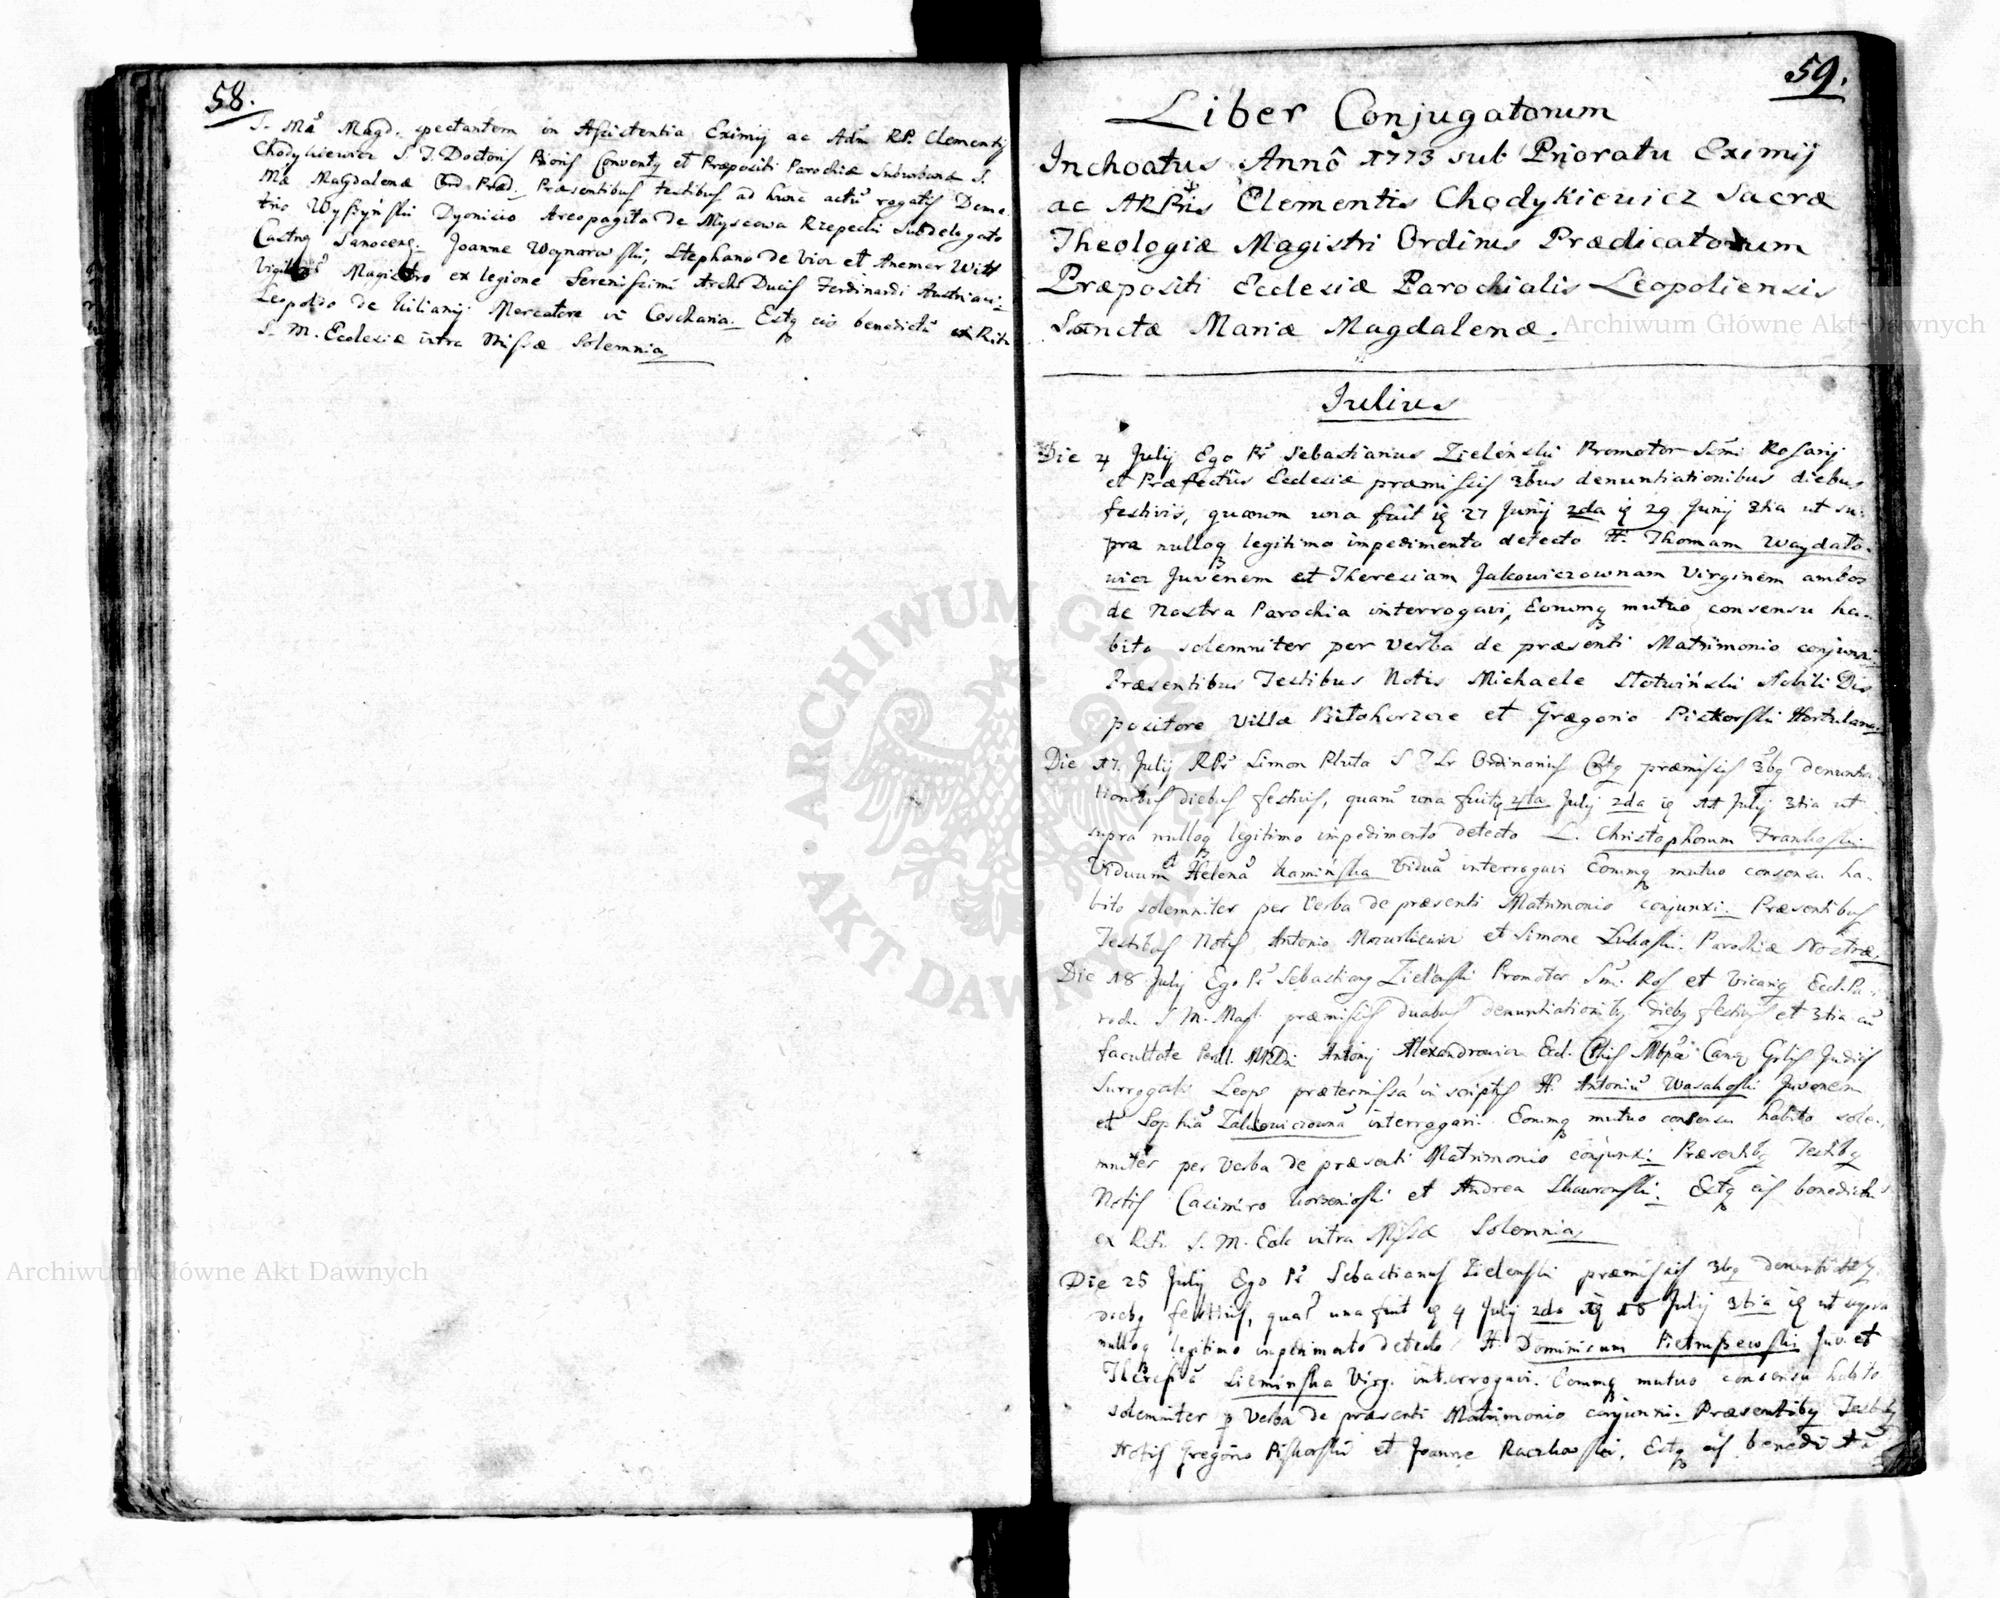 58.
S. Mã Magd. spectantem in Assistentia Eximij ac Adm RP. Clementij
Chodykiewicz S. T. Doctoris Prioris Conventq et Præpositi Parochiæ Suburbanæ S.
Mæ Magdalenæ Ord Præd. Præsentibus testibus ad hunc actũ rogatis Deme
trio Wyszyński Dyonisio Areopagita de Myscowa Rzepecki Subdelegato
Castrq Sanoceng. Joanne Woynarowski, Stephano de Vior et Anemer Witt
Vigiliarũ Magistro ex legione Serenissimi Archi Ducis Ferdinandi Austriaci
Leopoldo de Kilianij Mercatore in Coschania. Estq eis benedictũ ex Ritu
S. M. Ecclesiæ intra Missæ Solemnia
59.
Liber Conjugatorum
Inchoatus Annô 1773 sub Prioratu Eximij
ac ARPris Clementis Chodykiewicz Sacræ
Theologiæ Magistri Ordinis Prædicatorum
Præpositi Ecclesiæ Parochialis Leopoliensis
Sanctæ Mariæ Magdalenæ.
Julius
Die 4 Julij Ego Pr Sebastianus Zieleński Promotor Smi Rosarij
et Præfectus Ecclesiæ præmissis 3bus denuntiationibus diebus
festivis, quarum una fuit ig 27 Junij 2da ig 29 Junij 3tia ut su:
pra nulloq legitimo impedimento detecto H. Thomam Waydato-
wicz Juvenem et Theresiam Jakowiczownam Virginem ambos
de Nostra Parochia interrogavi, Eorumq mutuo consensu ha-
bito solemniter per Verba de præsenti Matrimonio conjunxi.
Præsentibus Testibus Notis Michaele Slotwiński Nobili Dis
positore Villæ Bitohorzcze et Grægorio Piskorski Hortulano.
Die 17. Julij RPr Simon Pluta S T Lr Ordinarius Cstq præmissis 3bq denuntia
tionibus diebus festivis, quarũ una fuitq 4ta Julij 2da ig 11 Julij 3tia ut
supra nulloq legitimo impedimento detecto L. Christophorum Frankoski
Viduum et Helenã Kamińska Viduã interrogavi Eorumq mutuo consensu ha-
bito solemniter per Verba de præsenti Matrimonio conjunxi. Præsentibus
Testibus Notis Antonio Mazurkiewicz et Simone Lukaski. Parochiæ Nostræ.
Die 18 Julij Ego Pr Sebastianq Zieleński Promotor Smi Ros et Vicariq Eccl. Pa-
roch. S M. Magd. præmissis duabus denuntiationibq diebq festivis et 3tia cũ
facultate Perill. MRDni Antonij Alexandrowicz Eccl. Chis Mbpæ Canq Gnlis Judicis
Surrogati Leops prætermissa in scriptis H. Antoniũ Wasakoski Juvenem
et Sophiã Zalkowiczownã interrogavi. Eorumq mutuo consensu habito sole-
mniter per Verba de præsenti Matrimonio conjunxi. Præsentibq Testibq
Notis Casimiro Korzenioski et Andrea Skawroński. Estq eis benedictũ
ex Ritu S. M. Eccle intra Missæ Solemnia
Die 25 Julij Ego Pr Sebastianus Zieleński præmissis 3bq denuntiatibq
diebq festivis, quarũ una fuit ig 4 Julij 2da ig 18 Julij 3tia ig ut supra
nulloq legitimo impedimento detecto H. Dominicum Pietruszewski Juv. et
Theresiã Siemińska Virg. interrogavi. Eorumq mutuo consensu habito
solemniter p Verba de præsenti Matrimonio conjunxi. Præsentibq Testibq
Notis Gregorio Piskorski et Joanne Raczkoski. Estq eis benedictũ
Archiwum Główne Akt Dawnych
Archiwum Główne Akt Dawnych
ARCHIWUM GŁÓWNE
AKT DAWNYCH